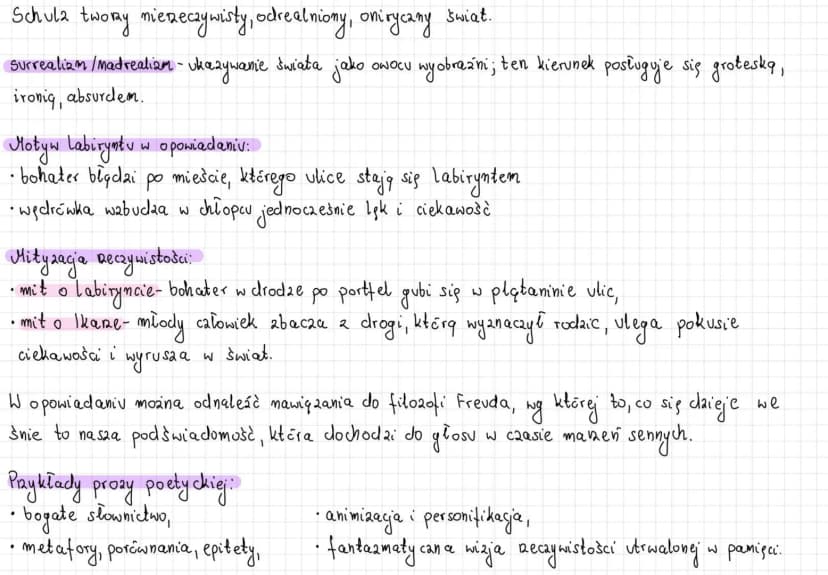 Schulz tworzy nierzeczywisty, odrealniony, oniryczny świat.
surrealizm/nadrealizm - ukazywanie świata jako owocu wyobraźni; ten kierunek posługuje się groteską,
ironią, absurdem.
Motyw labiryntu w opowiadaniu:
• bohater błądzi po mieście, którego ulice stają się labiryntem
• wędrówka wzbudza w chłopcu jednocześnie lęk i ciekawość
Mityzacja rzeczywistości:
• mit o labiryncie - bohater w drodze po portfel gubi się w plątaninie ulic,
• mit o Ikarze - młody człowiek zbacza z drogi, którą wyznaczył rodzic, ulega pokusie
ciekawości i wyrusza w świat.
W opowiadaniu można odnaleźć nawiązania do filozofi Freuda, wg której to, co się dzieje we
śnie to nasza podświadomość, która dochodzi do głosu w czasie marzeń sennych.
Przykłady prozy poetyckiej:
• bogate słownictwo, • animizacja i personifikacja,
• metafory, porównania, epitety, • fantazmatyczna wizja rzeczywistości utrwalonej w pamięci.